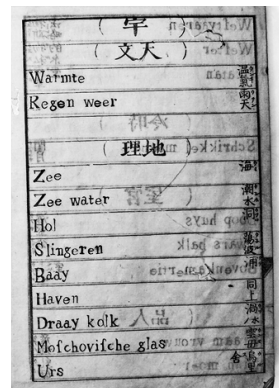 (文天)
Warmte 温氣
Regen weer 雨天
(理地)
Zee 海
Zee water 潮水
Hol 洞
Slingeren
Baay 浦
Haven 同上
Draay kolk 渦水
Moſchoviſche glas 雲母
Urs